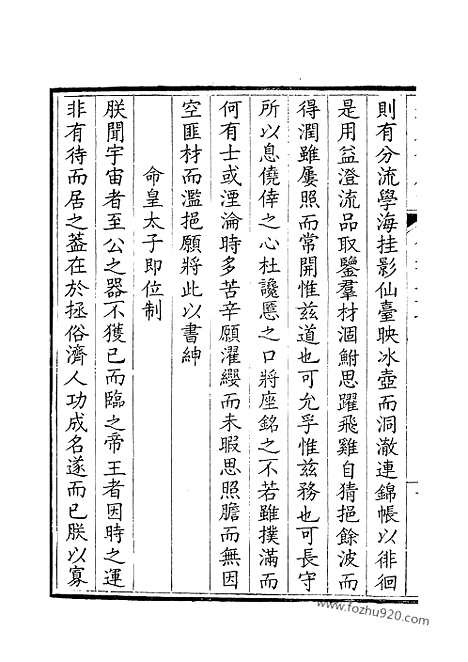 則有分流學海挂影仙臺映冰壺而洞澈連錦帳以徘徊
是用益澄流品取鑒羣材涸鮒思躍飛雞自猜挹餘波而
得潤雖屢照而常開惟兹道也可允孚惟兹務也可長守
所以息僥倖之心杜讒慝之口將座銘之不若雖撲滿而
何有士或湮淪時多苦辛願濯纓而未暇思照膽而無因
空匪材而濫挹願將此以書紳
命皇太子即位制
朕聞宇宙者至公之器不獲已而臨之帝王者因時之運
非有待而居之葢在於拯俗濟人功成名遂而已朕以寡
www.fozhu920.com